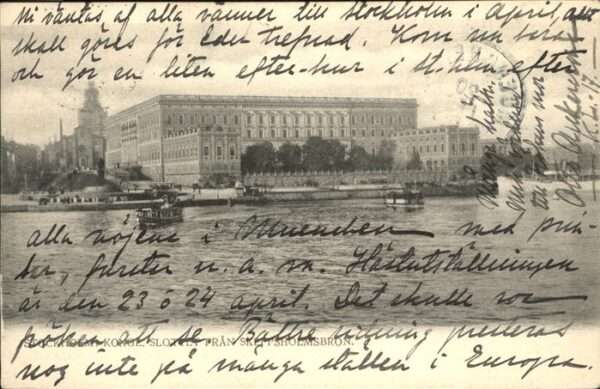 Ni väntas af alla vänner till Stockholm i April, allt
skall göras för eder trefnad. Kom nu bara
och gör en liten efter-kur i st.hlm efter
alla nöjena i Muenchen med prin-
sar, furster m. a. m. Hästutställningen
är den 23 o 24 april. Det skulle vara
att se. Bättre ridning presteras
STOCKHOLM. KONGL. SLOTTET FRÅN SKEPPSHOLMSBRON.
nog inte på många ställen i Europa.